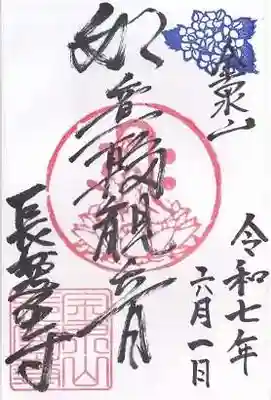 金泉山
令和七年
六月一日
如意輪観音
長慶寺